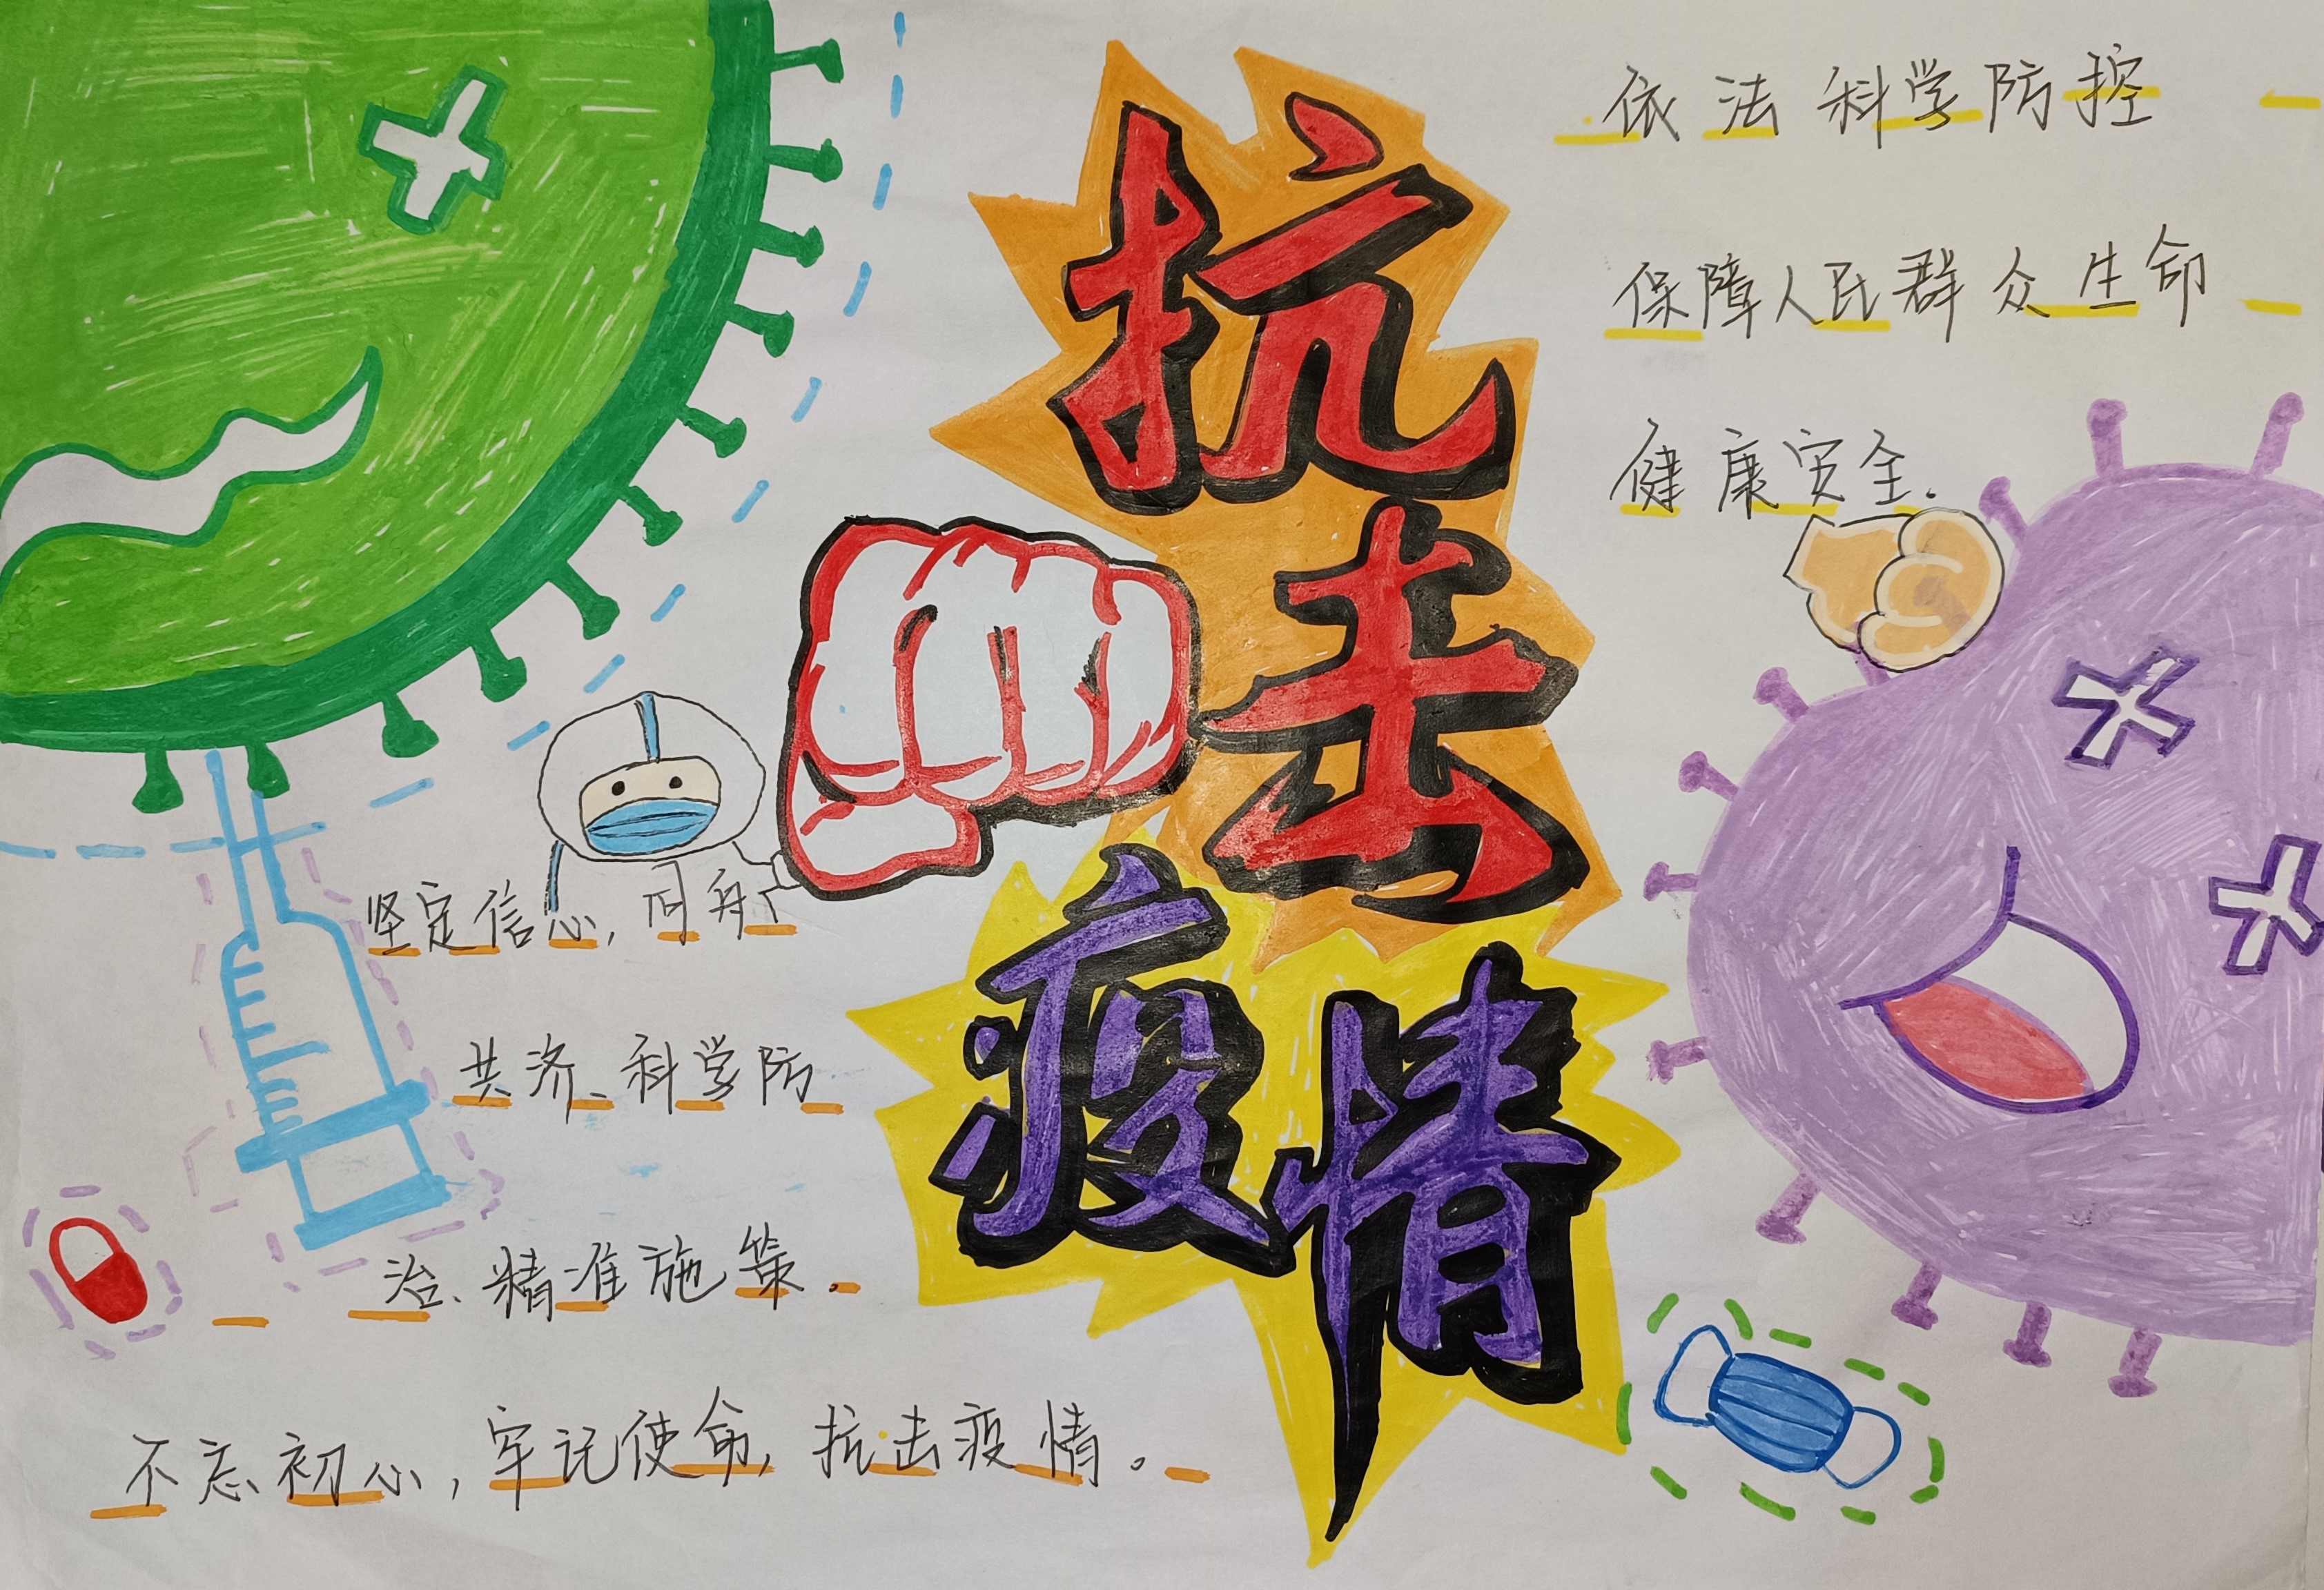 抗击
疫情
依法科学防控
保障人民群众生命
健康安全.
坚定信心,同舟
共济、科学防
治、精准施策。
不忘初心,牢记使命,抗击疫情。